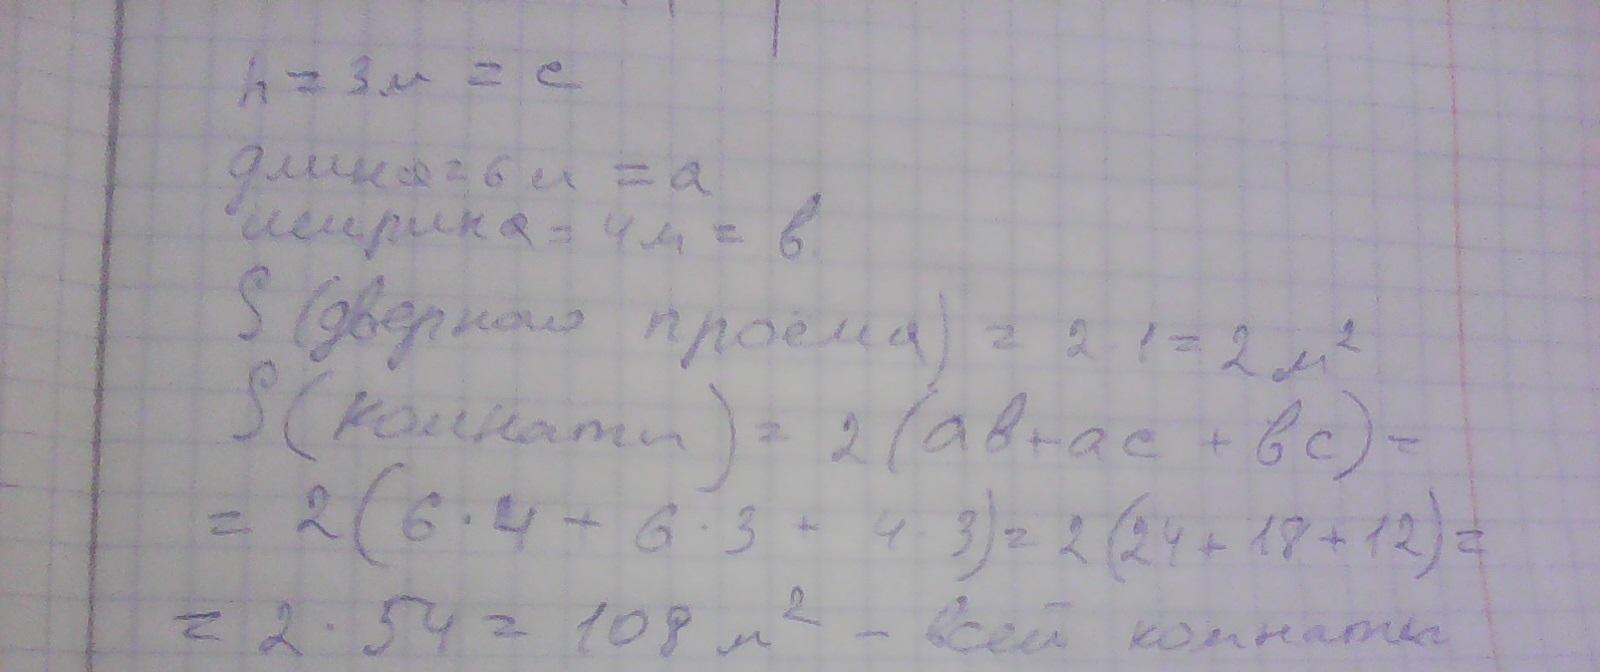 h = 3м = c
длина = 6м = a
ширина = 4м = в.
S (дверного проема) = 2·1 = 2 м²
S (комнаты) = 2 (ав + ac + вc) =
= 2 (6·4 + 6·3 + 4·3) = 2 (24 + 18 + 12) =
= 2·54 = 108 м² – всей комнаты